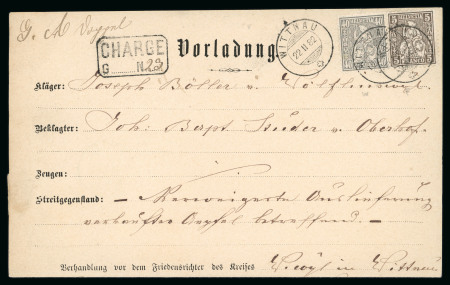 G. A. Doppel
CHARGE
G N. 23
Vorladung.
WITTNAU
22 II 82
5 5
Kläger: Joseph Böller v. Wölflinswyl.
Beklagter: Joh: Bapt Studer v. Oberhof.
Zeugen:
Streitgegenstand: — Verweigerte Auslieferung
verkaufter Aepfel betreffend. —
Verhandlung vor dem Friedensrichter des Kreises in Wittnau